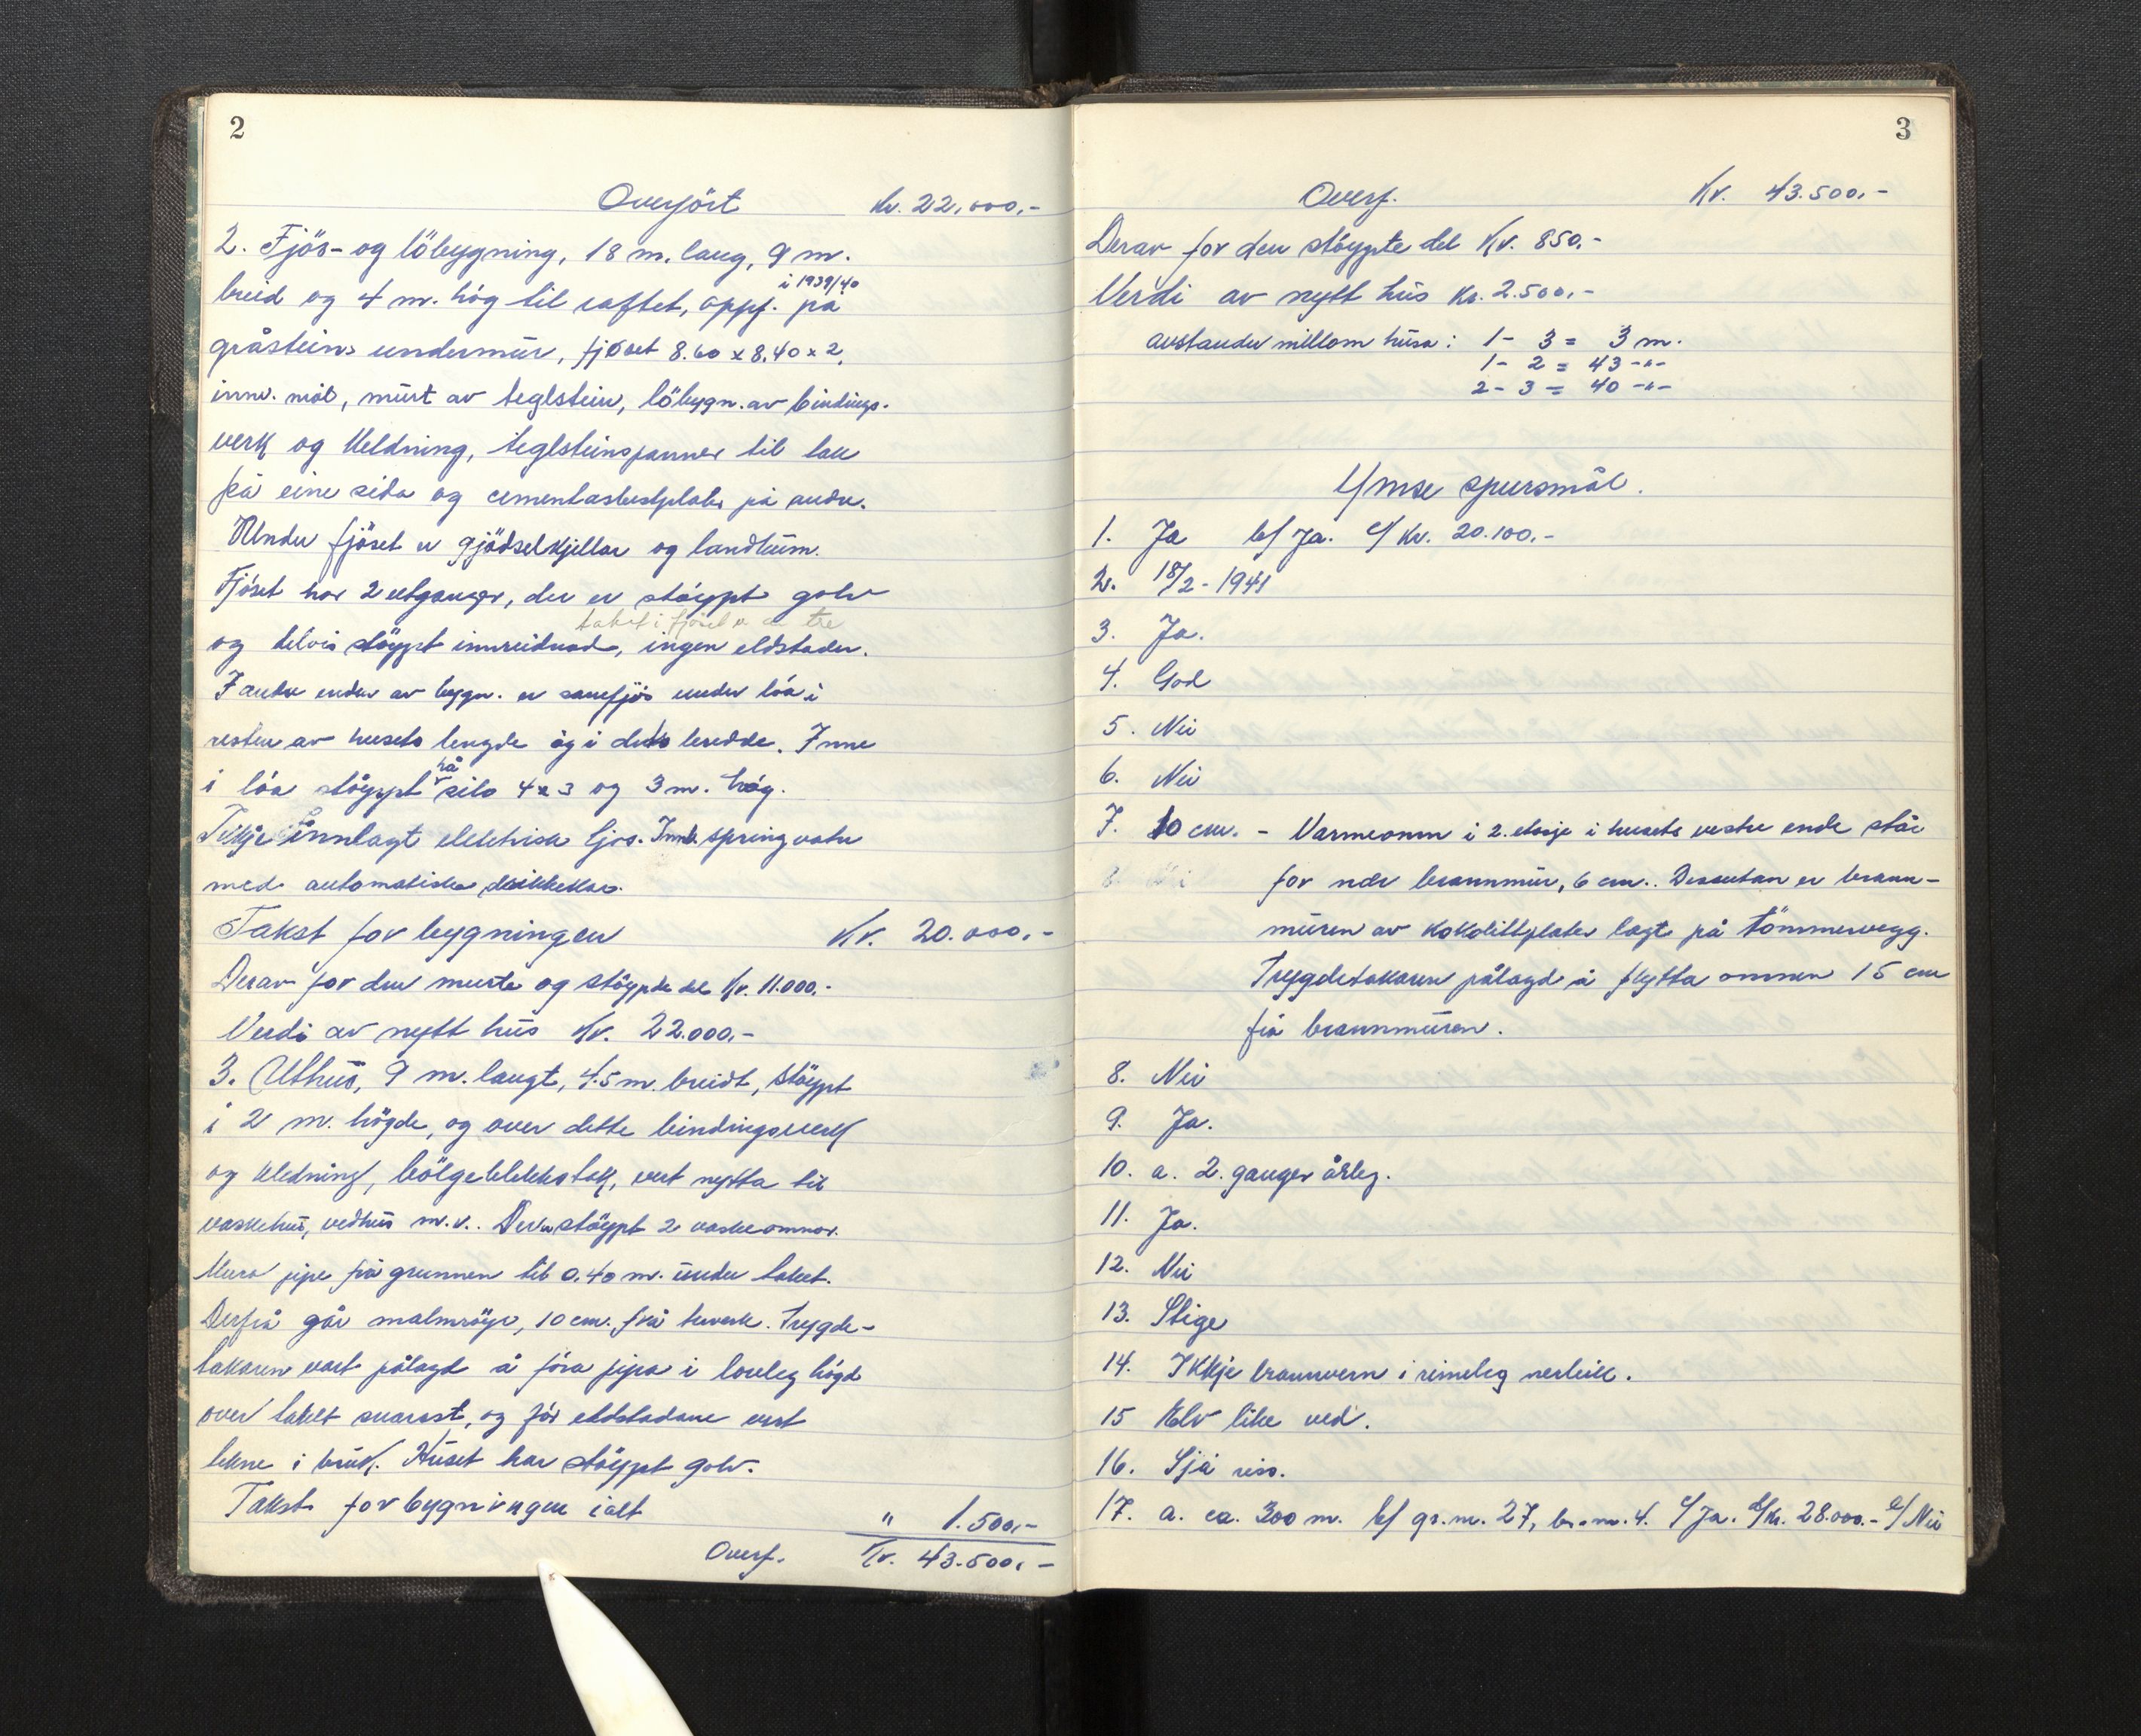 2
Overført Kr. 22.000,-
2. Fjös- og löbygning, 18 m. lang, 9 m.
breid og 4 m. hög til raftet, oppf. i 1939/40 på
gråsteins undermür, fjöset 8.60 x 8.40 x 2,
innv. mål, mürt av teglstein, löbygn. av bindings-
verk og kledning, teglsteinspanner til tak
på eine sida og cementasbestplater på andre.
Under fjöset er gjödselkjellar og landkum.
Fjöset har 2 utganger, der er støypt golv
taket i fjöset er av tre
og delvis støypt innreidnad, ingen eldstader.
I andre enden av bygn. er sauefjös under löa i
resten av husets lengde og i dets bredde. Inne
i löa støypt hå silo 4 x 3 og 3 m. høg.
Ikkje innlagt elektrisk ljos. Innl. springvatn
med automatiske drikkekar.
Takst for bygningen Kr. 20.000,-
Derav for den murte og støypte del Kr. 11.000.-
Verdi av nytt hüs Kr. 22.000,-
3. Uthüs, 9 m. langt, 4.5 m. breidt, støypt
i 2 m. högde, og over dette bindingsverk
og kledning, bölgeblekkstak, vert nytta til
vaskehüs, vedhüs m.v.. Der er støypt 2 vaskeomnar.
Mura pipe frå grunnen til 0.40 m. ünder taket.
Derfrå går malmröyr, 10 cm. frå treverk. Trygde-
takaren vart pålagd å föra pipa i lovleg högd
over taket snarast, og för eldstadane vert
tekne i brük. Hüset har støypt golv.
Takst for bygningen ialt " 1.500,-
Overf. Kr. 43.500,-
3
Overf. Kr. 43.500,-
Derav for den støypte del Kr. 850.-
Verdi av nytt hüs Kr. 2.500,-
avstander millom hüsa: 1 - 3 = 3 m.
1 - 2 = 43 -"-
2 - 3 = 40 -"-
Ymse spursmål.
1. Ja b/ Ja. c/ Kr. 20.100.-
2. 18/2 - 1941
3. Ja.
4. God
5. Nei
6. Nei
7. 10 cm. - Varmeomn i 2. etasje i husets vestre ende står
for nær brannmür, 6 cm.. Dessutan er brann-
müren av kokolittplater lagt på tömmervegg.
Trygdetakaren pålagd å flytta omnen 15 cm
frå brannmüren.
8. Nei
9. Ja.
10. a. 2. ganger årleg.
11. Ja.
12. Nei
13. Stige
14. Ikkje brannvern i rimeleg nærleik.
15 Elv like ved.
16. Sjå riss.
17. a. ca. 300 m. b/ gr.nr. 27, br.nr. 4. c/ Ja. d/ Kr. 28.000.- e/ Nei